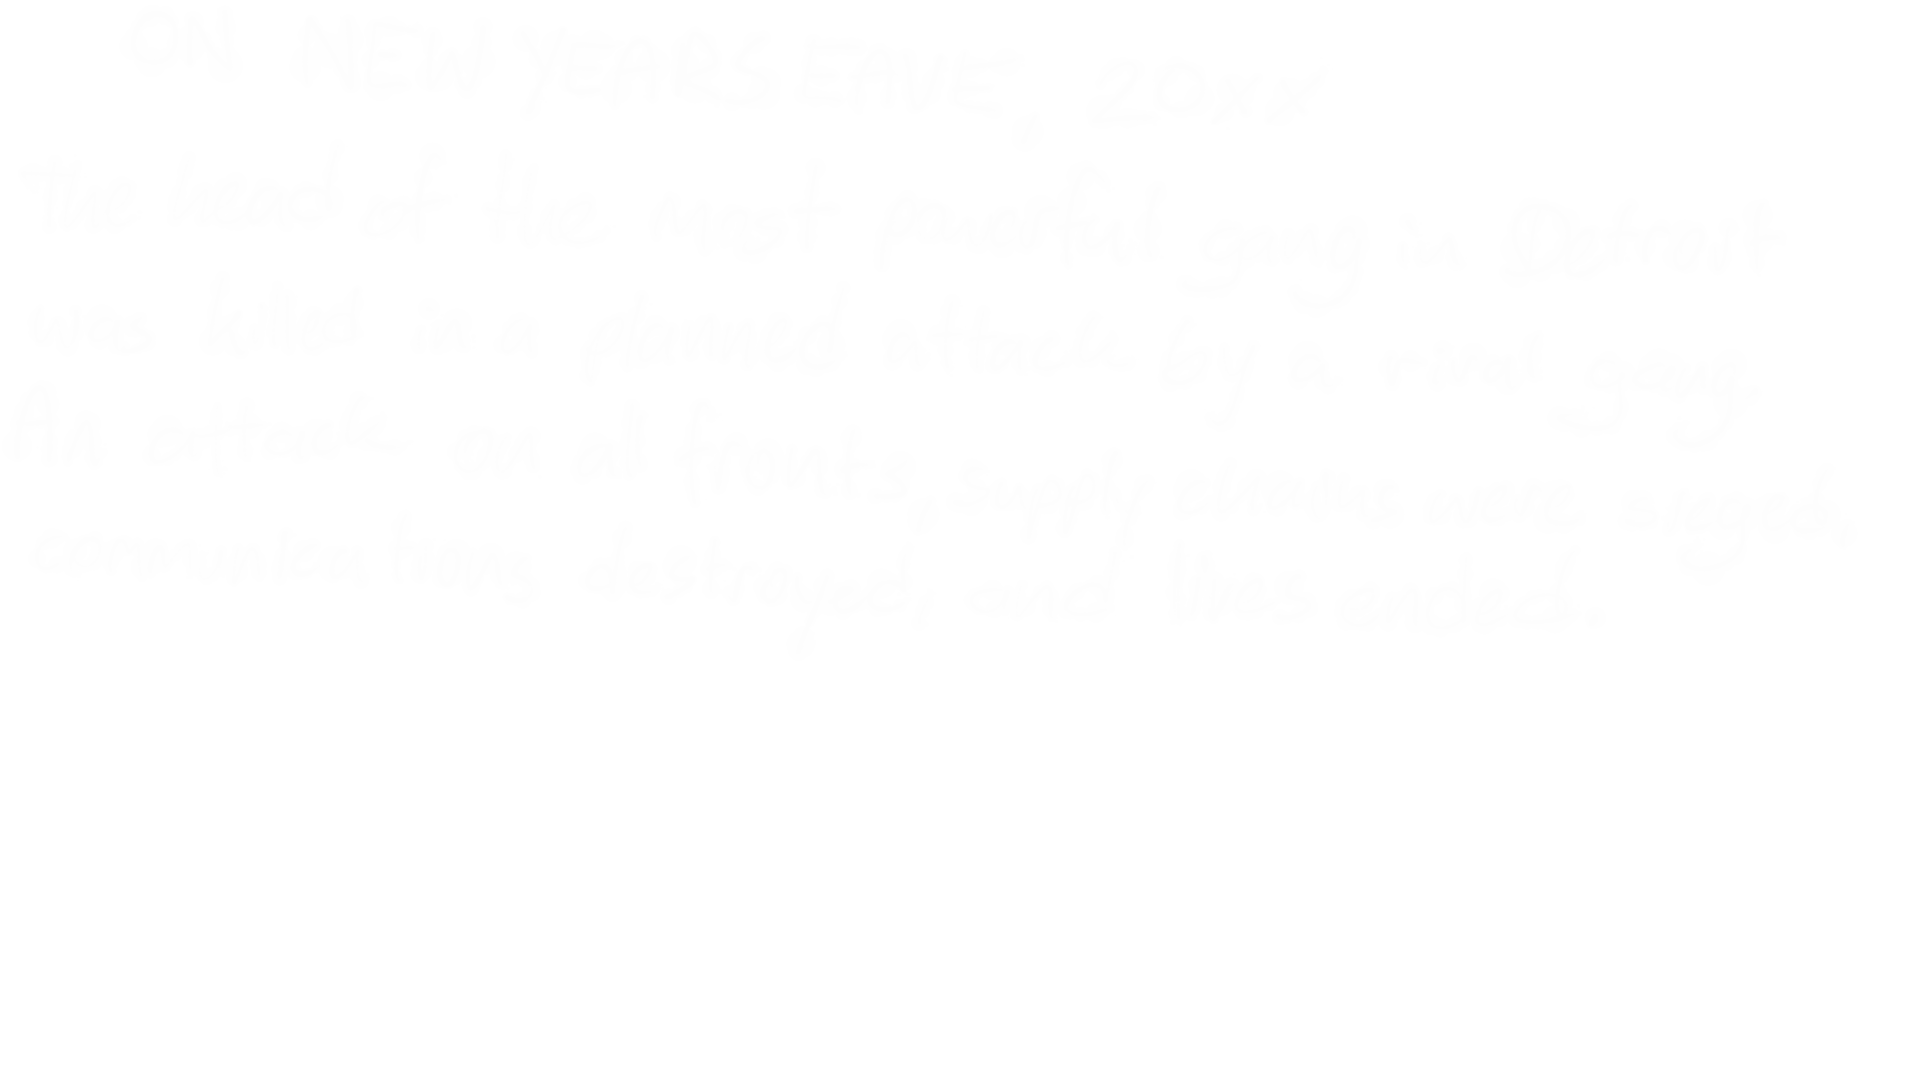 ON NEW YEARS EAVE, 20xx
The head of the most powerful gang in Detroit
was killed in a planned attack by a rival gang.
An attack on all fronts, supply streams were sieged,
communications destroyed, and lives ended.